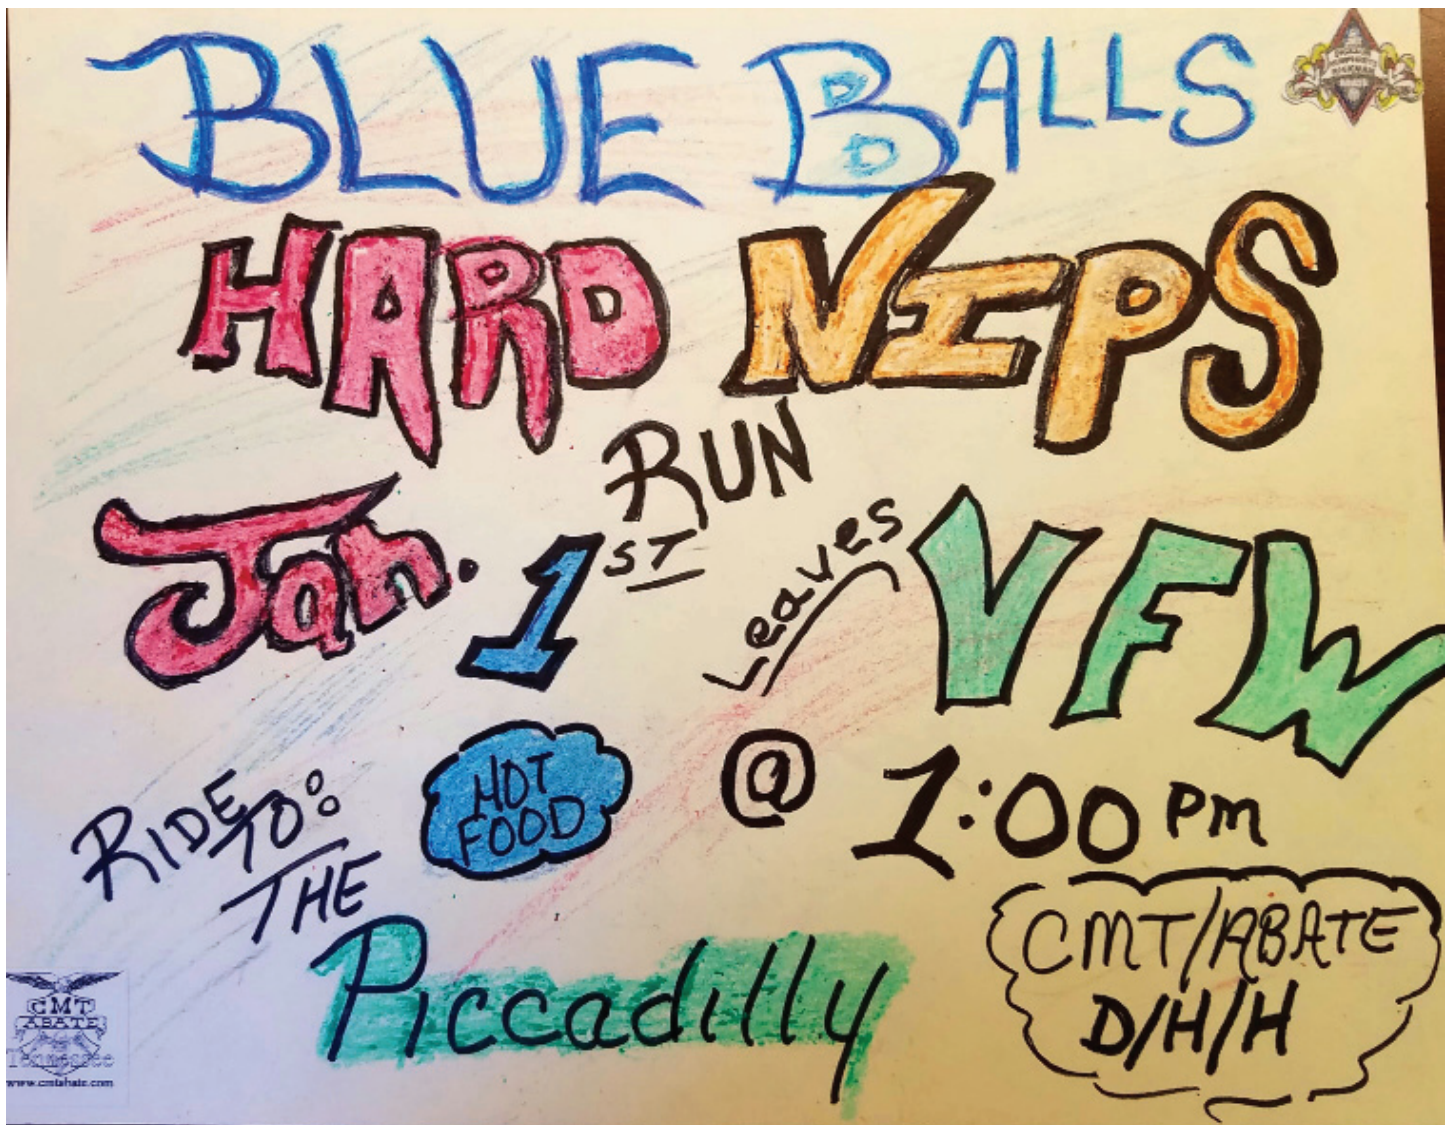 BLUE BALLS
HARD NIPS
RUN
Jan. 1ST
Leaves
VFW
@ 1:00 PM
HOT
FOOD
RIDE
TO:
THE
Piccadilly
CMT/ABATE
D/H/H
CMT
ABATE
Tennessee
www.cmtabate.com